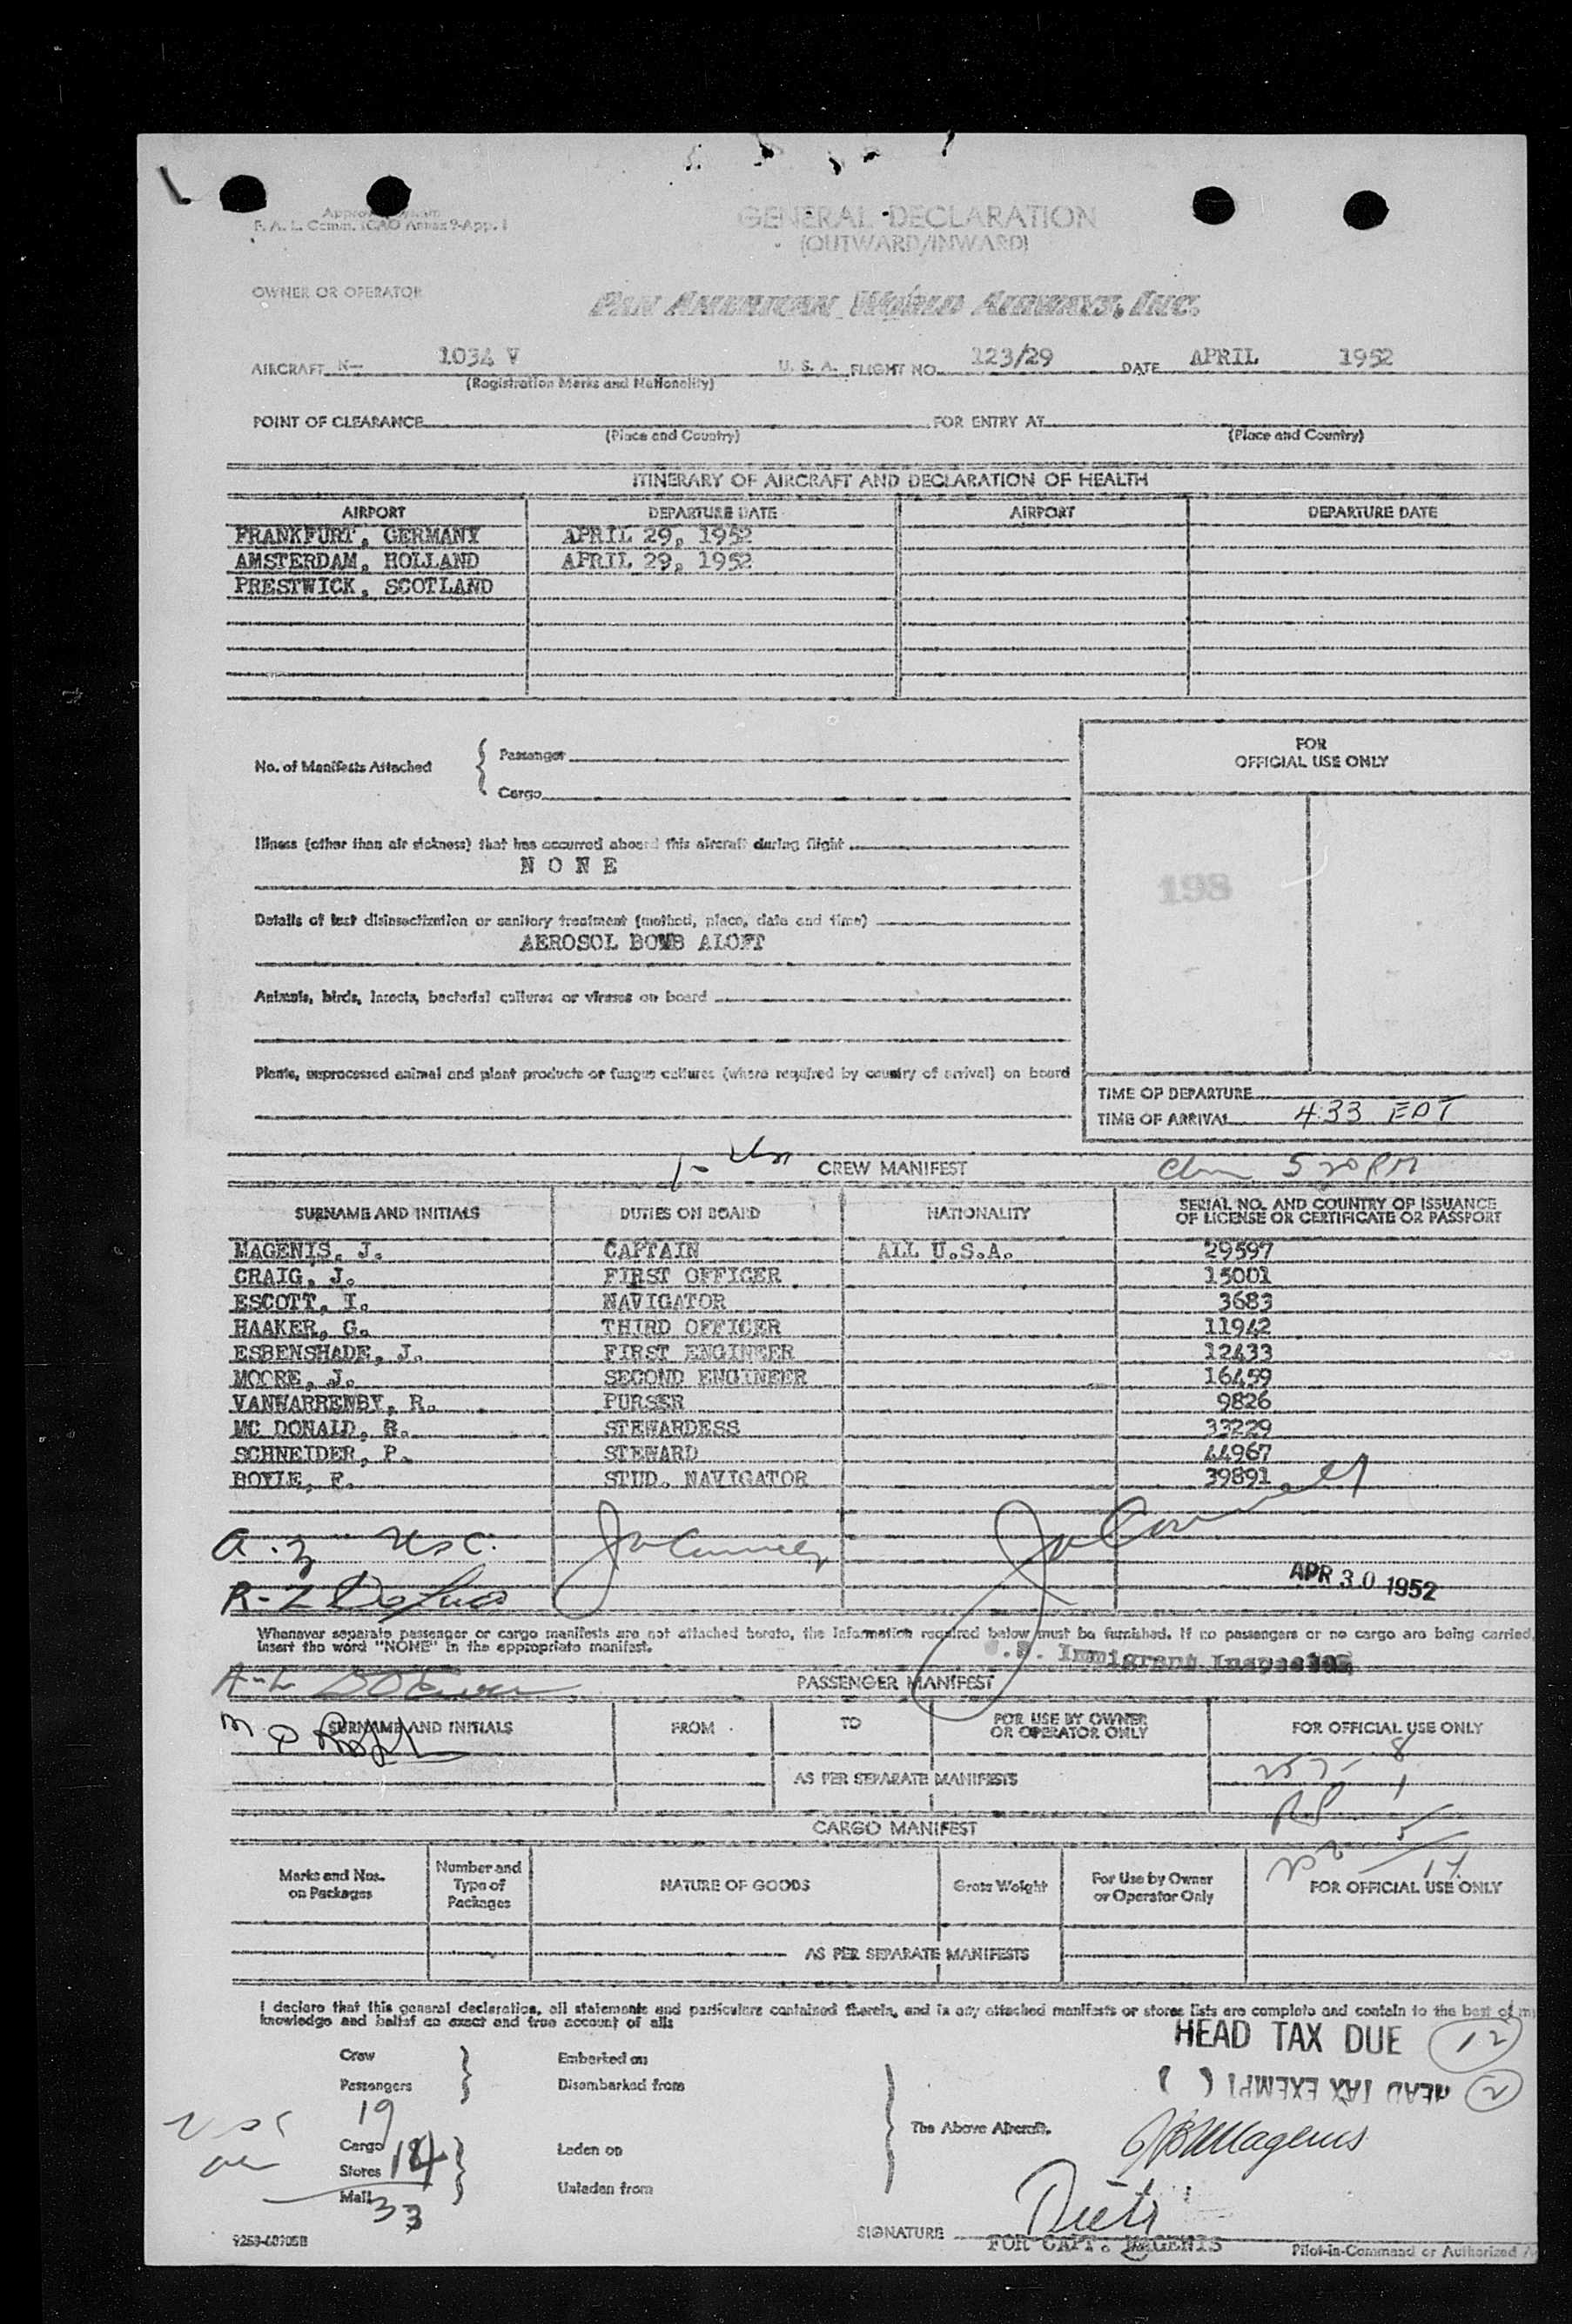 F. A. L. Comm. ICAO Annex 9-App. 1
GENERAL DECLARATION
(OUTWARD/INWARD)
OWNER OR OPERATOR
PAN AMERICAN WORLD AIRWAYS, INC.
AIRCRAFT N— 1034 V U. S. A. FLIGHT NO. 123/29 DATE APRIL 1952
(Registration Marks and Nationality)
POINT OF CLEARANCE FOR ENTRY AT
(Place and Country) (Place and Country)
ITINERARY OF AIRCRAFT AND DECLARATION OF HEALTH
AIRPORT DEPARTURE DATE AIRPORT DEPARTURE DATE
FRANKFURT, GERMANY APRIL 29, 1952
AMSTERDAM, HOLLAND APRIL 29, 1952
PRESTWICK, SCOTLAND
FOR
OFFICIAL USE ONLY
No. of Manifests Attached { Passenger
Cargo
Illness (other than air sickness) that has occurred aboard this aircraft during flight
N O N E
198
Details of last disinsectization or sanitary treatment (method, place, date and time)
AEROSOL BOMB ALOFT
Animals, birds, insects, bacterial cultures or viruses on board
Plants, unprocessed animal and plant products or fungus cultures (where required by country of arrival) on board
TIME OF DEPARTURE
TIME OF ARRIVAL 4:33 EDT
CREW MANIFEST
5 20 PM
SURNAME AND INITIALS DUTIES ON BOARD NATIONALITY SERIAL NO. AND COUNTRY OF ISSUANCE
OF LICENSE OR CERTIFICATE OR PASSPORT
MAGENIS, J. CAPTAIN ALL U.S.A. 29597
CRAIG, J. FIRST OFFICER 15001
ESCOTT, I. NAVIGATOR 3683
HAAKER, G. THIRD OFFICER 11942
ESBENSHADE, J. FIRST ENGINEER 12433
MOORE, J. SECOND ENGINEER 16459
VANWARRENBY, R. PURSER 9826
MC DONALD, R. STEWARDESS 33229
SCHNEIDER, P. STEWARD 44967
BOYLE, F. STUD. NAVIGATOR 39891
APR 30 1952
Whenever separate passenger or cargo manifests are not attached hereto, the information required below must be furnished. If no passengers or no cargo are being carried,
insert the word "NONE" in the appropriate manifest.
. S. Immigrant Inspector
PASSENGER MANIFEST
SURNAME AND INITIALS FROM TO FOR USE BY OWNER
OR OPERATOR ONLY FOR OFFICIAL USE ONLY
AS PER SEPARATE MANIFESTS
CARGO MANIFEST
Marks and Nos.
on Packages Number and
Type of
Packages NATURE OF GOODS Gross Weight For Use by Owner
or Operator Only FOR OFFICIAL USE ONLY
AS PER SEPARATE MANIFESTS
I declare that this general declaration, all statements and particulars contained therein, and in any attached manifests or stores lists are complete and contain to the best of m
knowledge and belief an exact and true account of all:
HEAD TAX DUE 12
Crew Embarked on
Passengers Disembarked from
HEAD TAX EXEMPT ( ) 2
19
The Above Aircraft.
Cargo Laden on
Stores 14
Mail Unladen from
33
JB Magenis
SIGNATURE
FOR CAPT. MAGENIS
Pilot-in-Command or Authorized